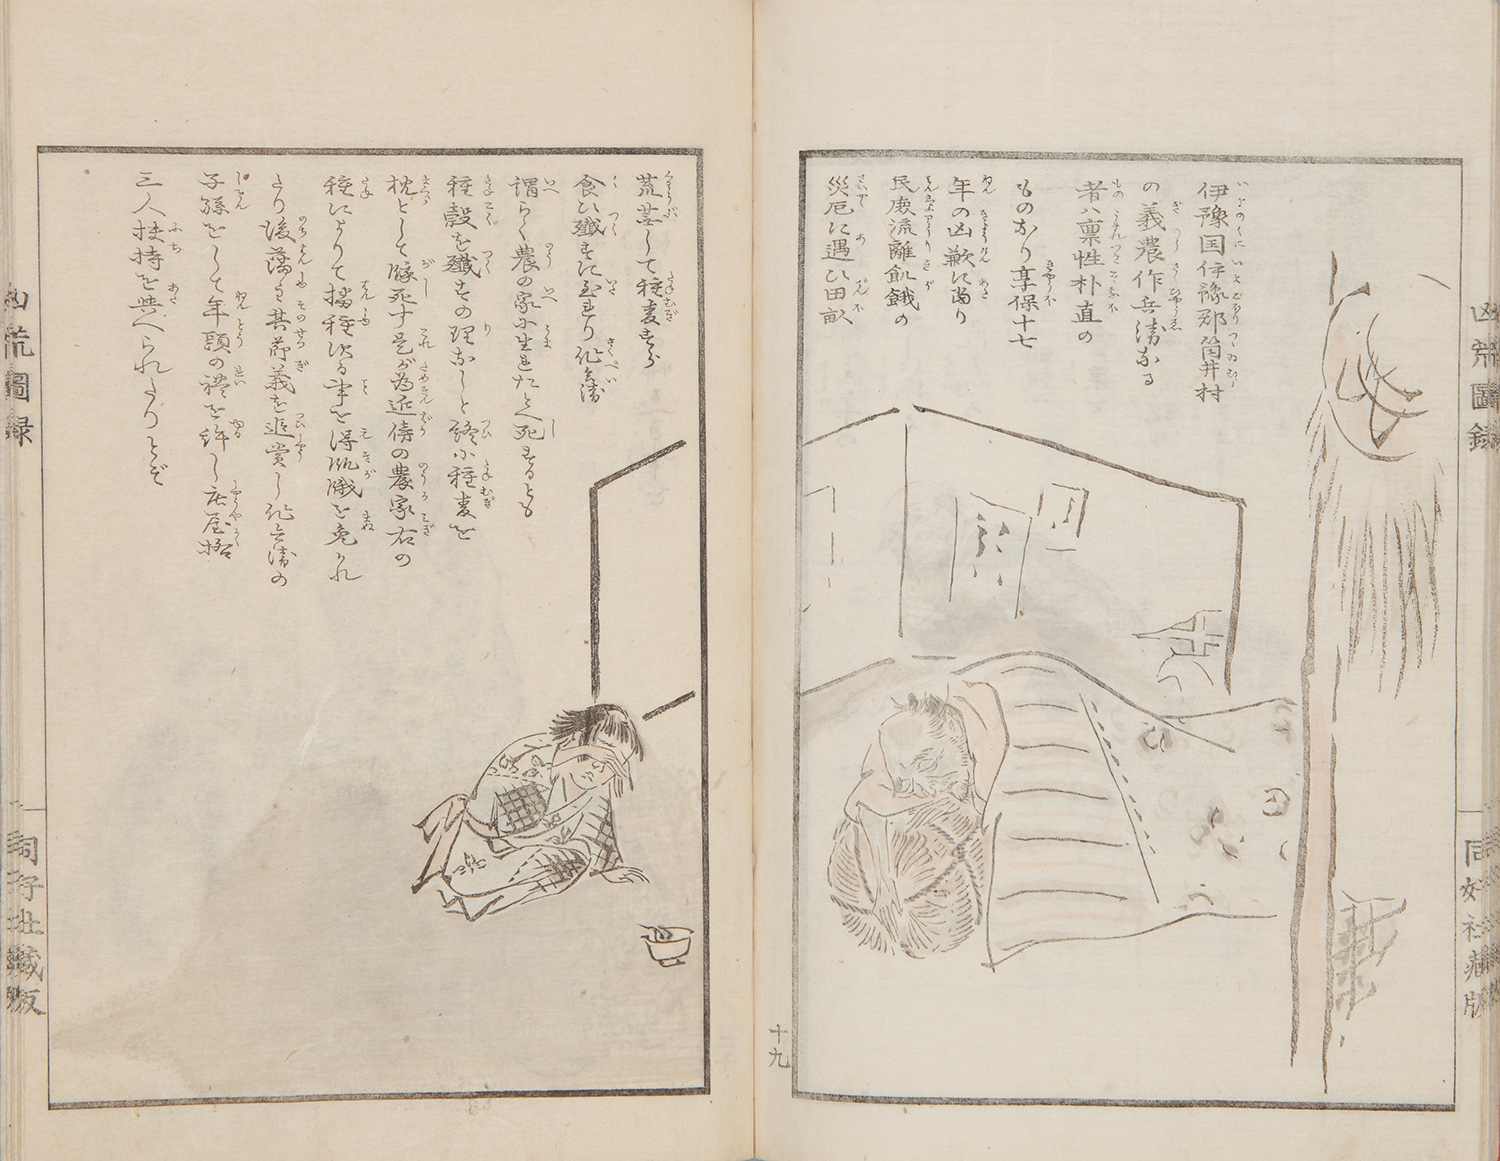 伊豫国伊豫郡筒井村
の義農作兵衛なる
者ハ禀性朴直の
ものなり享保十七
年の凶歉に當り
民庶流離飢餓の
災厄に遇ひ田畝
荒蕪して種麦すら
食ひ殲すに至れり作兵衛
謂らく農の家に生れたとへ死するとも
種穀を殲すの理なしと終に種麦を
枕として餓死す是が為近傍の農家右の
種によりて播種する事を得飢餓を免かれ
たり後藩主其節義を追賞し作兵衛の
子孫をして年頭の禮を許し庄屋格
三人扶持を与へられたりとぞ
十九
凶荒圖録
同好社蔵版
凶荒圖録
同好社藏版